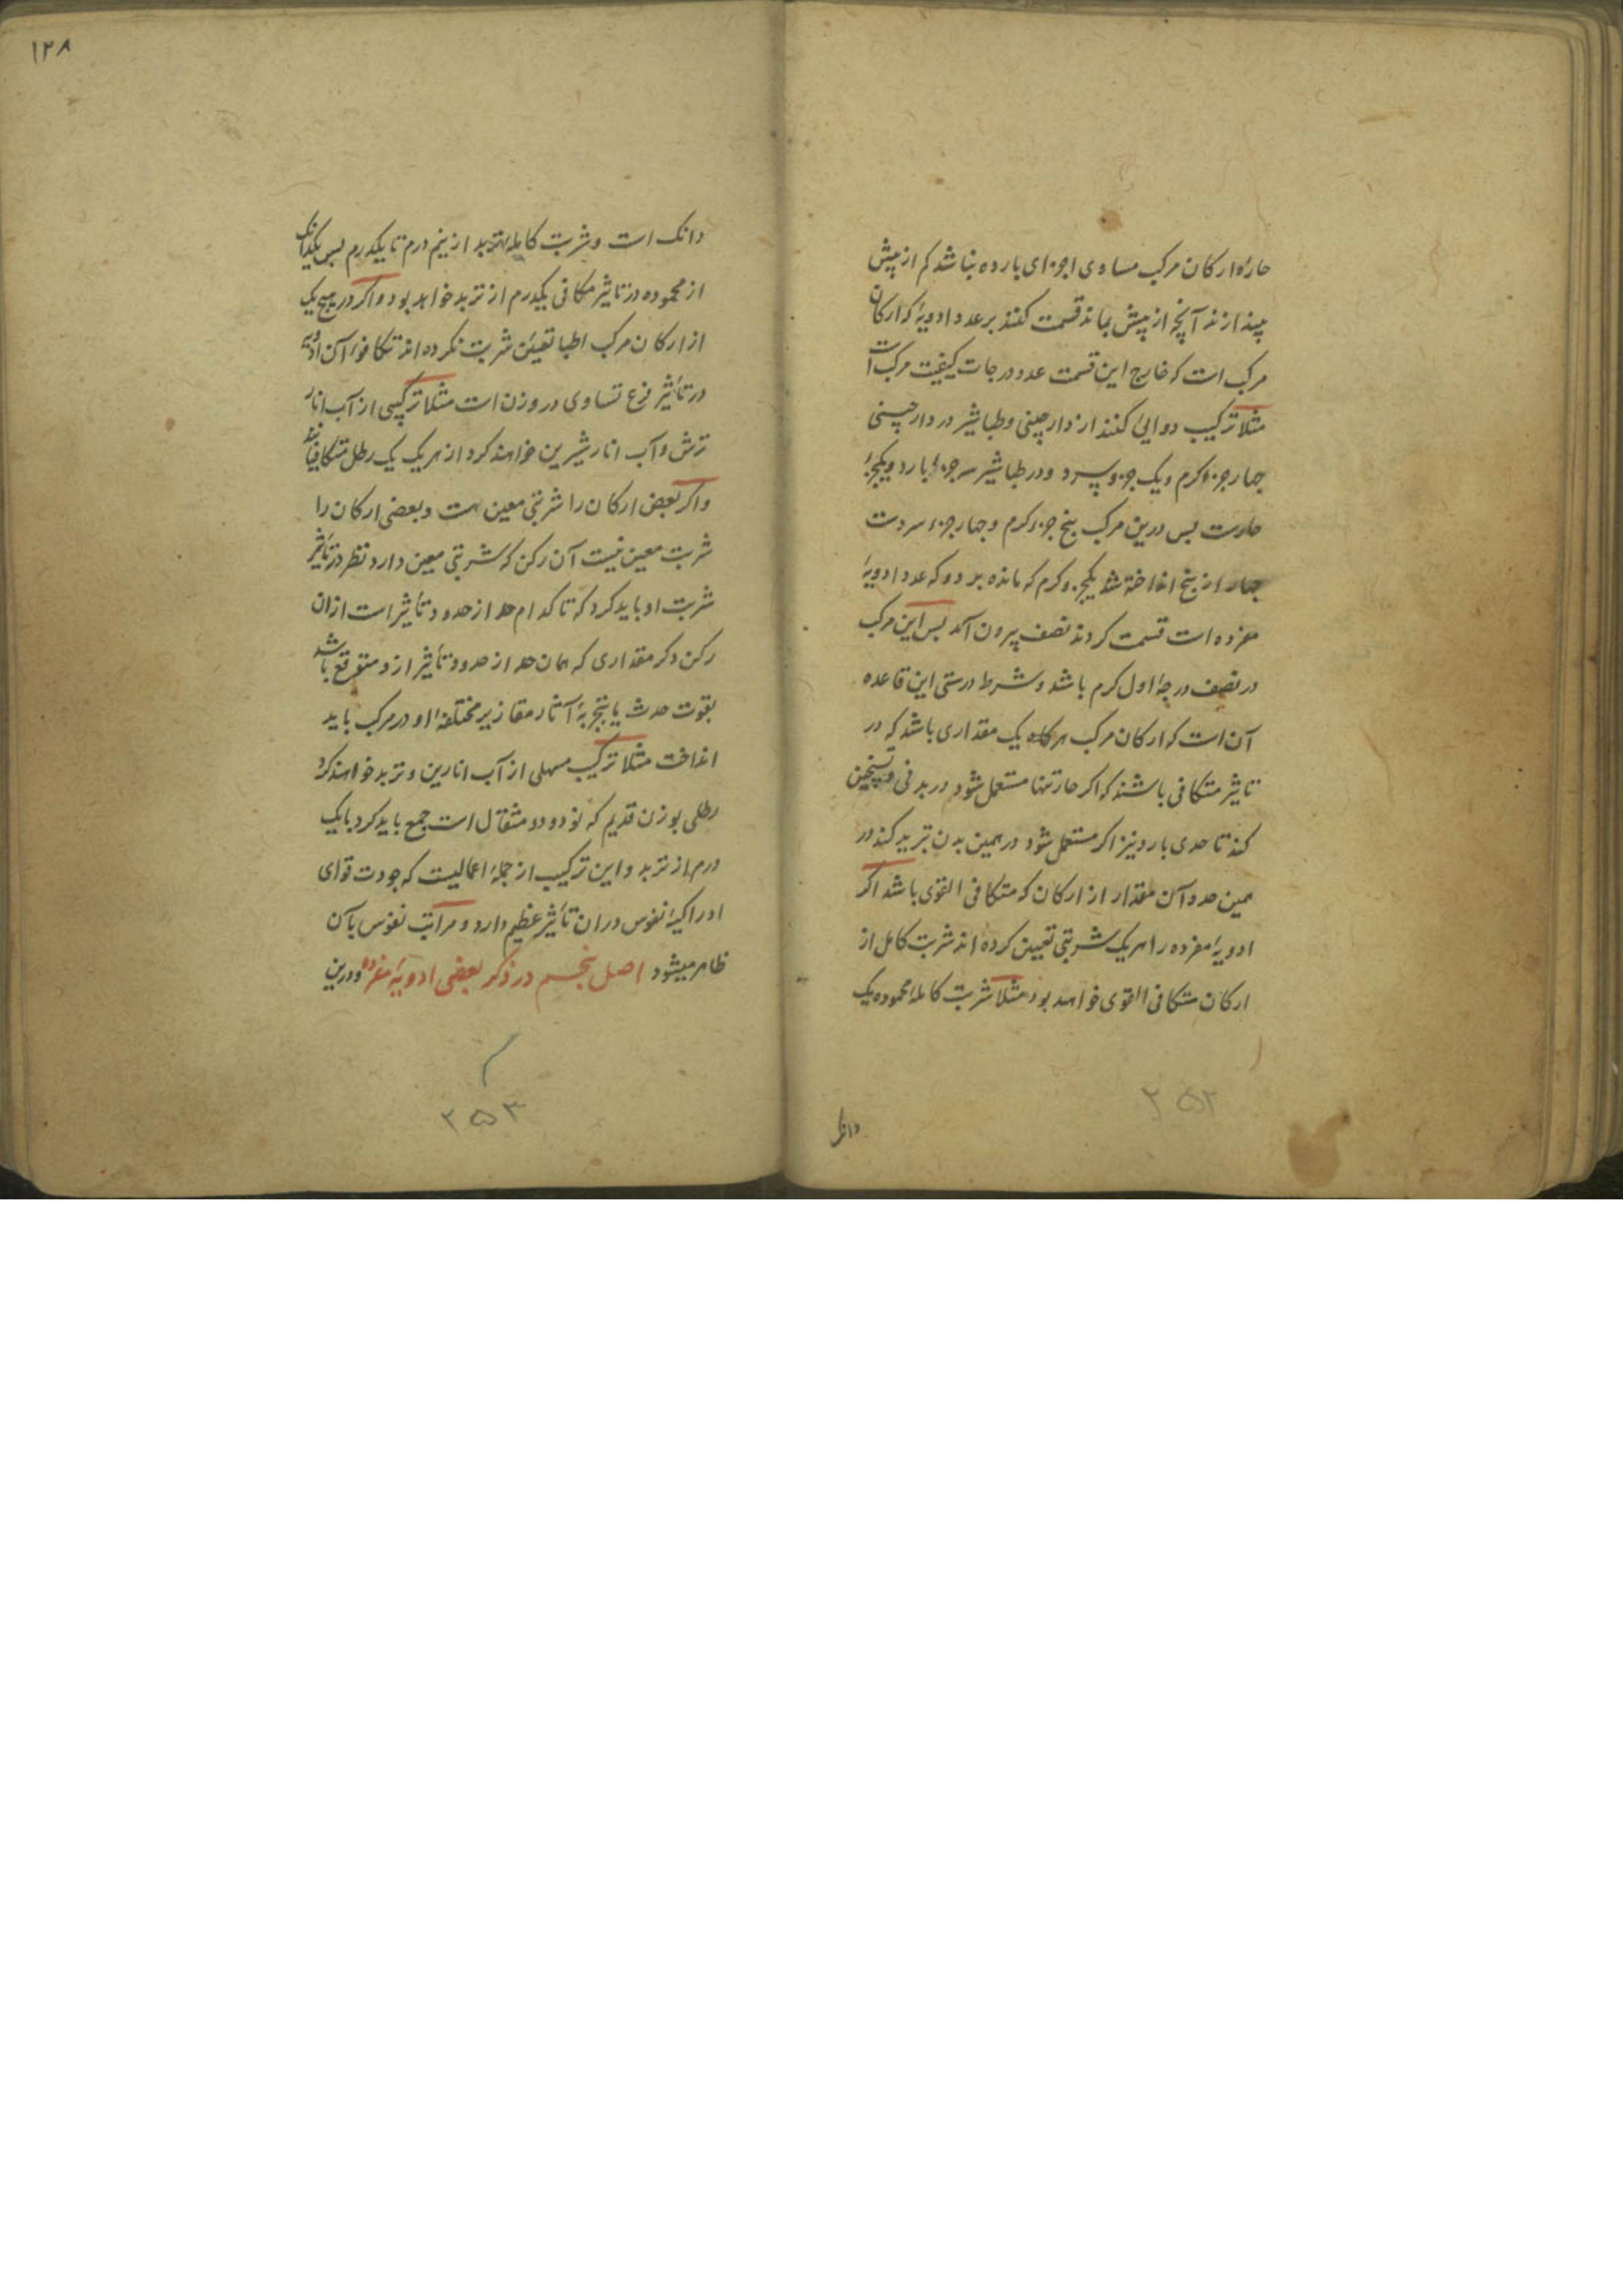 حاره ارکان مرکب مساوی اجزای بارده نباشد کم از بیش
بیندازند آنچه از بیش بماند قسمت کنند بر عدد ادویهٔ که ارکان
مرکب است که خارج این قسمت عدد درجات کیفیت مرکب است
مثلا ترکیب دوایی کنند از دارچینی و طباشیر در دارچینی
چهار جزء کرم و یک جزو سرد و در طباشیر سه جزء بارد و یکجزء
حارست بس درین مرکب پنج جزء کرم و چهار جزء سردست
چهار از پنج انداخته شد یکجزو کرم که مانده بر دو که عدد ادویهٔ
مفرده است قسمت کردند نصف بیرون آمد بس این مرکب
در نصف درجهٔ اول کرم باشد و شرط درستی این قاعده
آن است که ارکان مرکب هرکاه یک مقداری باشد که در
تاثیر متکافی باشند که اگر حار تنها مستعمل شود در بدنی تسخین
کند تا حدی بارد نیز اکر مستعمل شود در همین بدن تبرید کند در
همین حد و آن مقدار از ارکان که متکافی القوی باشد اکر
ادویهٔ مفرده را هر یک شربتی تعیین کرده اند شربت کامل از
ارکان متکافی القوی خواهد بود مثلا شربت کاملهٔ محموده یک
دانک
۲۵۲
۱۲۸
دانک است و شربت کامله تربد از نیم درم تا یکدرم بس یکدانک
از محموده در تاثیر مکافی یکدرم از تربد خواهد بود و اکر در هیچ یک
از ارکان مرکب اطبا تعیین شربت نکرده اند تکافوء آن ادویه
در تأثیر فرع تساوی در وزن است مثلا ترکیبی از آب انار
ترش و آب انار شیرین خواهند کرد از هر یک یک رطل متکافیانند
و اکر بعض ارکان را شربتی معین هست و بعضی ارکان را
شربت معین نیست آن رکن که شربتی معین دارد نظر در تأثیر
شربت او باید کرد که تا کدام حد از حدود تأثیر است از ان
رکن دکر مقداری که همان حد از حدود تأثیر ازو متوقع باشد
بقوت حدس یا بتجربهٔ آثار مقادیر مختلفهٔ او در مرکب باید
انداخت مثلا ترکیب مسهلی از آب انارین و تربد خواهند کرد
رطلی بوزن قدیم که نود و دو مثقال است جمع باید کرد با یک
درم از تربد و این ترکیب از جملهٔ اعمالیست که جودت قوای
ادراکیهٔ نفوس در ان تأثیر عظیم دارد و مراتب نفوس بآن
ظاهر میشود اصل پنجم در ذکر بعضی ادویهٔ مفرده و درین
۲۵۳